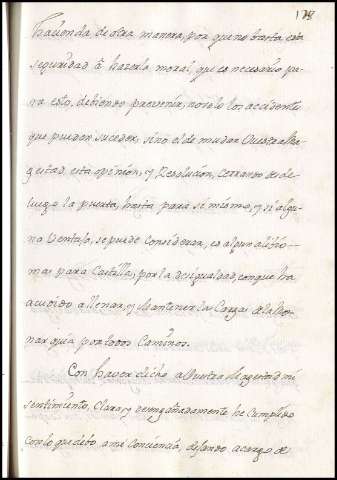 hacienda de otra manera, por que no basta esta
seguridad â hazerla moral, que es necesario pa-
ra esto, debiendo prevenir, no solo los accidentes
que pueden suceder, sino el de mudar Vuestra Ma-
gestad, esta opinión, y Resolución, cerrando desde
luego la puerta, hasta para sí mismo, y si algu-
na Ventaja, se puede Considerar, es algun alivio
mas para Castilla, por la desigualdad, con que ha
acudido a llenar, y Mantener las Cargas de la Mo-
narquia por todos Caminos.
Con haver dicho a Vuestra Magestad mi
sentimiento, Clara, y desengañadamente he Cumplido
con lo que debo a mi Conciencia, dejando a cargo de